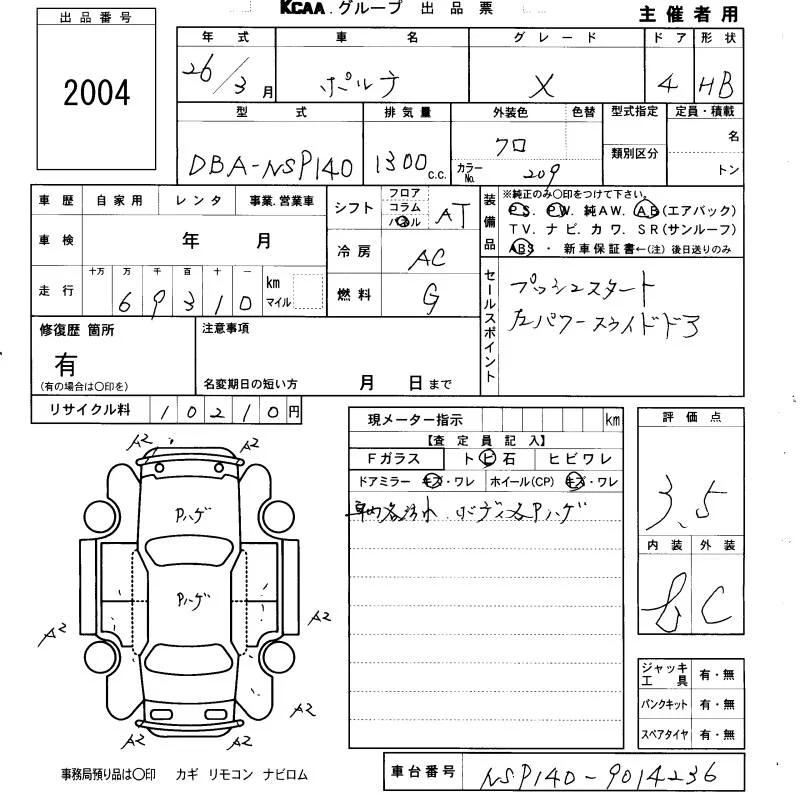 KCAA.グループ 出品票 主催者用
出品番号
2004
年式 車名 グレード ドア 形状
26/3月 ポルテ X 4 HB
型式 排気量 外装色 色替 型式指定 定員・積載
DBA-NSP140 1300c.c. クロ カラーNo. 209 類別区分 名 トン
車歴 自家用 レンタ 事業.営業車
シフト フロア コラム パネル AT
装備品 ※純正のみ○印をつけて下さい。
PS. PW. 純AW. AB(エアバック)
TV. ナビ. カワ. SR(サンルーフ)
ABS ・ 新車保証書←(注)後日送りのみ
車検 年 月
冷房 AC
走行 十万 万 千 百 十 一
69310 km マイル
燃料 G
セールスポイント
プッシュスタート
左パワースライドドア
修復歴 箇所
有
(有の場合は○印を)
注意事項
名変期日の短い方 月 日まで
リサイクル料 10210円
現メーター指示 km
【査定員記入】
Fガラス トビ石 ヒビワレ
ドアミラー キズ・ワレ ホイール(CP) キズ・ワレ
車内各汚れ ボディ各Pハゲ
評価点
3.5
内装 外装
C
A2 A2
Pハゲ
Pハゲ
A2 A2
A2 A2
ジャッキ工具 有・無
パンクキット 有・無
スペアタイヤ 有・無
事務局預り品は○印 カギ リモコン ナビロム
車台番号 NSP140-9014236